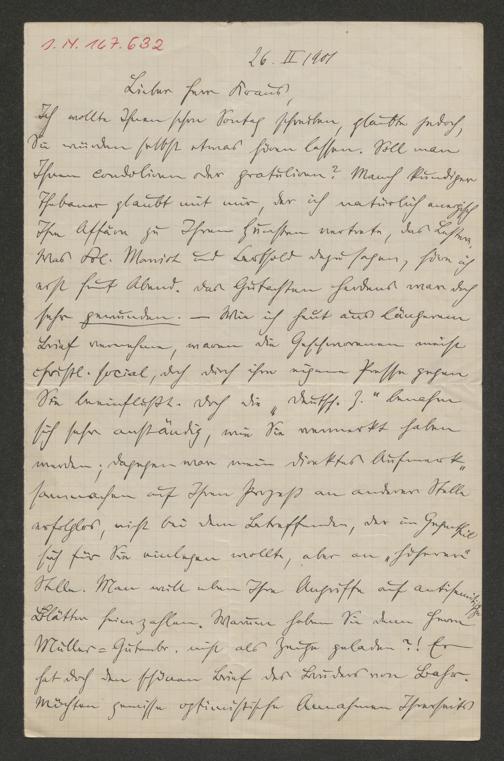 I.N. 167.632
26. II 1901
Lieber Herr Kraus,
Ich wollte Ihnen schon Sontag schreiben, glaubte jedoch,
Sie würden selbst etwas hören lassen. Soll man
Ihnen condoliren oder gratuliren? Manch kundiger
Thebaner glaubt mit mir, der ich natürlich energisch
Ihre Affäre zu Ihren Gunsten vertrete, das Letztere.
Was Frl. Marriot und Berthold dazu sagen, höre ich
erst heut Abend. Das Gutachten Hardens war doch
sehr gewunden. — Wie ich heut aus längerem
Brief vernehme, waren die Geschworenen meist
christl.-social, doch durch ihre eigene Presse gegen
Sie beeinflußt. Doch die „Deutsch. Z." benahm
sich sehr anständig, wie Sie vermerkt haben
werden; dagegen war mein direktes Aufmerk-
sammachen auf Ihren Prozeß an anderer Stelle
erfolglos, nicht bei dem Betreffenden, der im Gegentheil
sich für Sie einlegen wollte, aber an „höherer"
Stelle. Man will eben Ihre Angriffe auf antisemitische
Blätter heimzahlen. Warum haben Sie denn Herrn
Müller=Gutenbr. nicht als Zeuge geladen?! Er
hat doch den schönen Brief des Bruders von Bahr.
Möchten gewisse optimistische Annahmen Ihrerseits